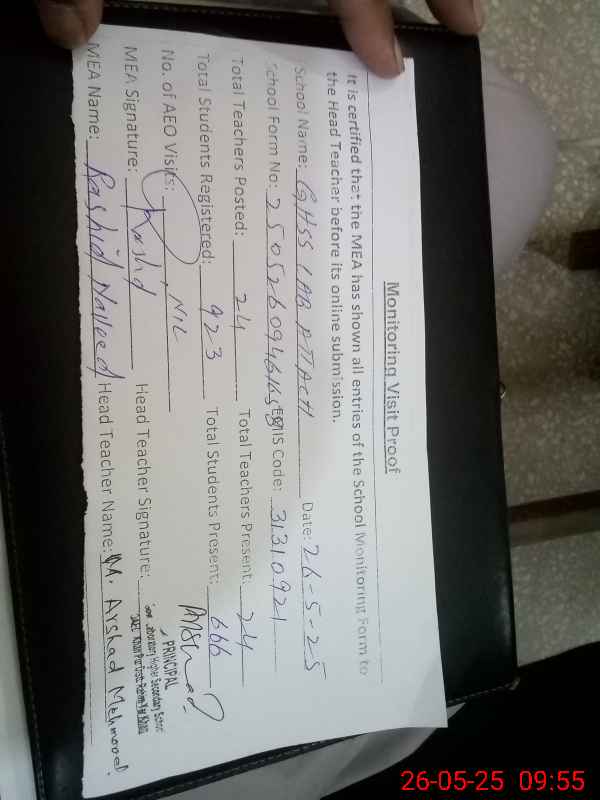 Monitoring Visit Proof
It is certified that the MEA has shown all entries of the School Monitoring Form to
the Head Teacher before its online submission.
School Name: GHSS LAB ATTACH Date: 26-5-25
School Form No: EMIS Code: 31310921
Total Teachers Posted: 24 Total Teachers Present: 24
Total Students Registered: 923 Total Students Present: 666
No. of AEO Visits: NIL
MEA Signature: Rashd Head Teacher Signature: Arshad
PRINCIPAL
Laboratory Higher Secondary School
MEA Name: Rashid Naveed Head Teacher Name: M. Arshad Mehmood
26-05-25 09:55